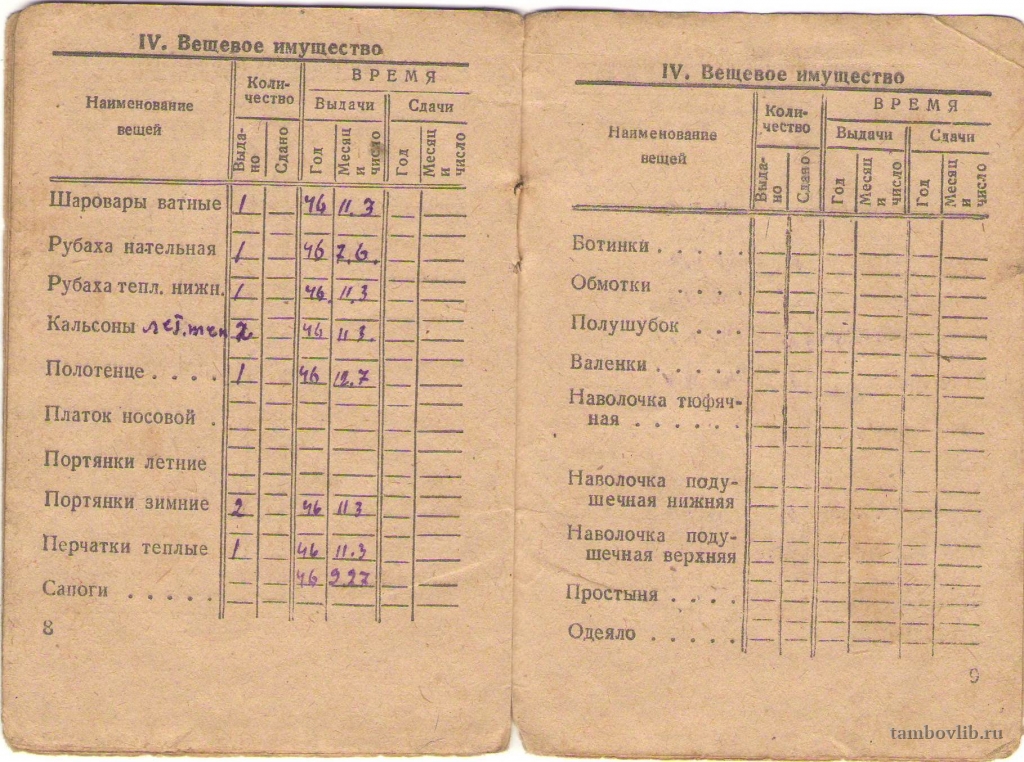 IV. Вещевое имущество
Наименование вещей
Количество
ВРЕМЯ
Выдачи
Сдачи
Выдано
Сдано
Год
Месяц и число
Год
Месяц и число
Шаровары ватные 1 46 11.3
Рубаха нательная 1 46 7.6.
Рубаха тепл. нижн. 1 46 11.3
Кальсоны 2 46 11 3.
Полотенце . . . . 1 46 12.7
Платок носовой .
Портянки летние
Портянки зимние 2 46 11 3
Перчатки теплые 1 46 11.3
46 2 27
Сапоги . . . . .
8
IV. Вещевое имущество
Наименование вещей
Количество
ВРЕМЯ
Выдачи
Сдачи
Выдано
Сдано
Год
Месяц и число
Год
Месяц и число
Ботинки . . . .
Обмотки . . . .
Полушубок . . .
Валенки . . . .
Наволочка тюфяч-
ная . . . . . .
Наволочка поду-
шечная нижняя
Наволочка поду-
шечная верхняя
Простыня . . . .
Одеяло . . . . .
9
tambovlib.ru